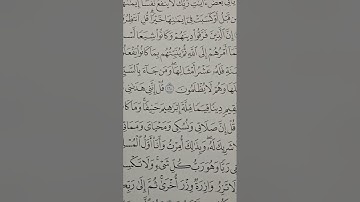 بَعْضُ ءَايَٰتِ رَبِّكَ لَا يَنفَعُ نَفْسًا إِيمَٰنُهَا
قَبْلُ أَوْ كَسَبَتْ فِىٓ إِيمَٰنِهَا خَيْرًا قُلِ ٱنتَظِرُ
إِنَّ ٱلَّذِينَ فَرَّقُوا۟ دِينَهُمْ وَكَانُوا۟ شِيَعًا
مَآ أَمْرُهُمْ إِلَى ٱللَّهِ ثُمَّ يُنَبِّئُهُم بِمَا كَانُوا۟ يَفْعَلُ
نَةِ فَلَهُۥ عَشْرُ أَمْثَالِهَا وَمَن جَآءَ بِٱلسَّيِّ
هَا وَهُمْ لَا يُظْلَمُونَ ١٦٠ قُلْ إِنَّنِى هَدَىٰنِى
قِيمٍ دِينًا قِيَمًا مِّلَّةَ إِبْرَٰهِيمَ حَنِيفًا وَمَا كَا
قُلْ إِنَّ صَلَاتِى وَنُسُكِى وَمَحْيَاىَ وَمَمَاتِى
شَرِيكَ لَهُۥ وَبِذَٰلِكَ أُمِرْتُ وَأَنَا۠ أَوَّلُ ٱلْمُسْلِ
ى رَبًّا وَهُوَ رَبُّ كُلِّ شَىْءٍ وَلَا تَكْسِ
لَا تَزِرُ وَازِرَةٌ وِزْرَ أُخْرَىٰ ثُمَّ إِلَىٰ رَبِّكُ